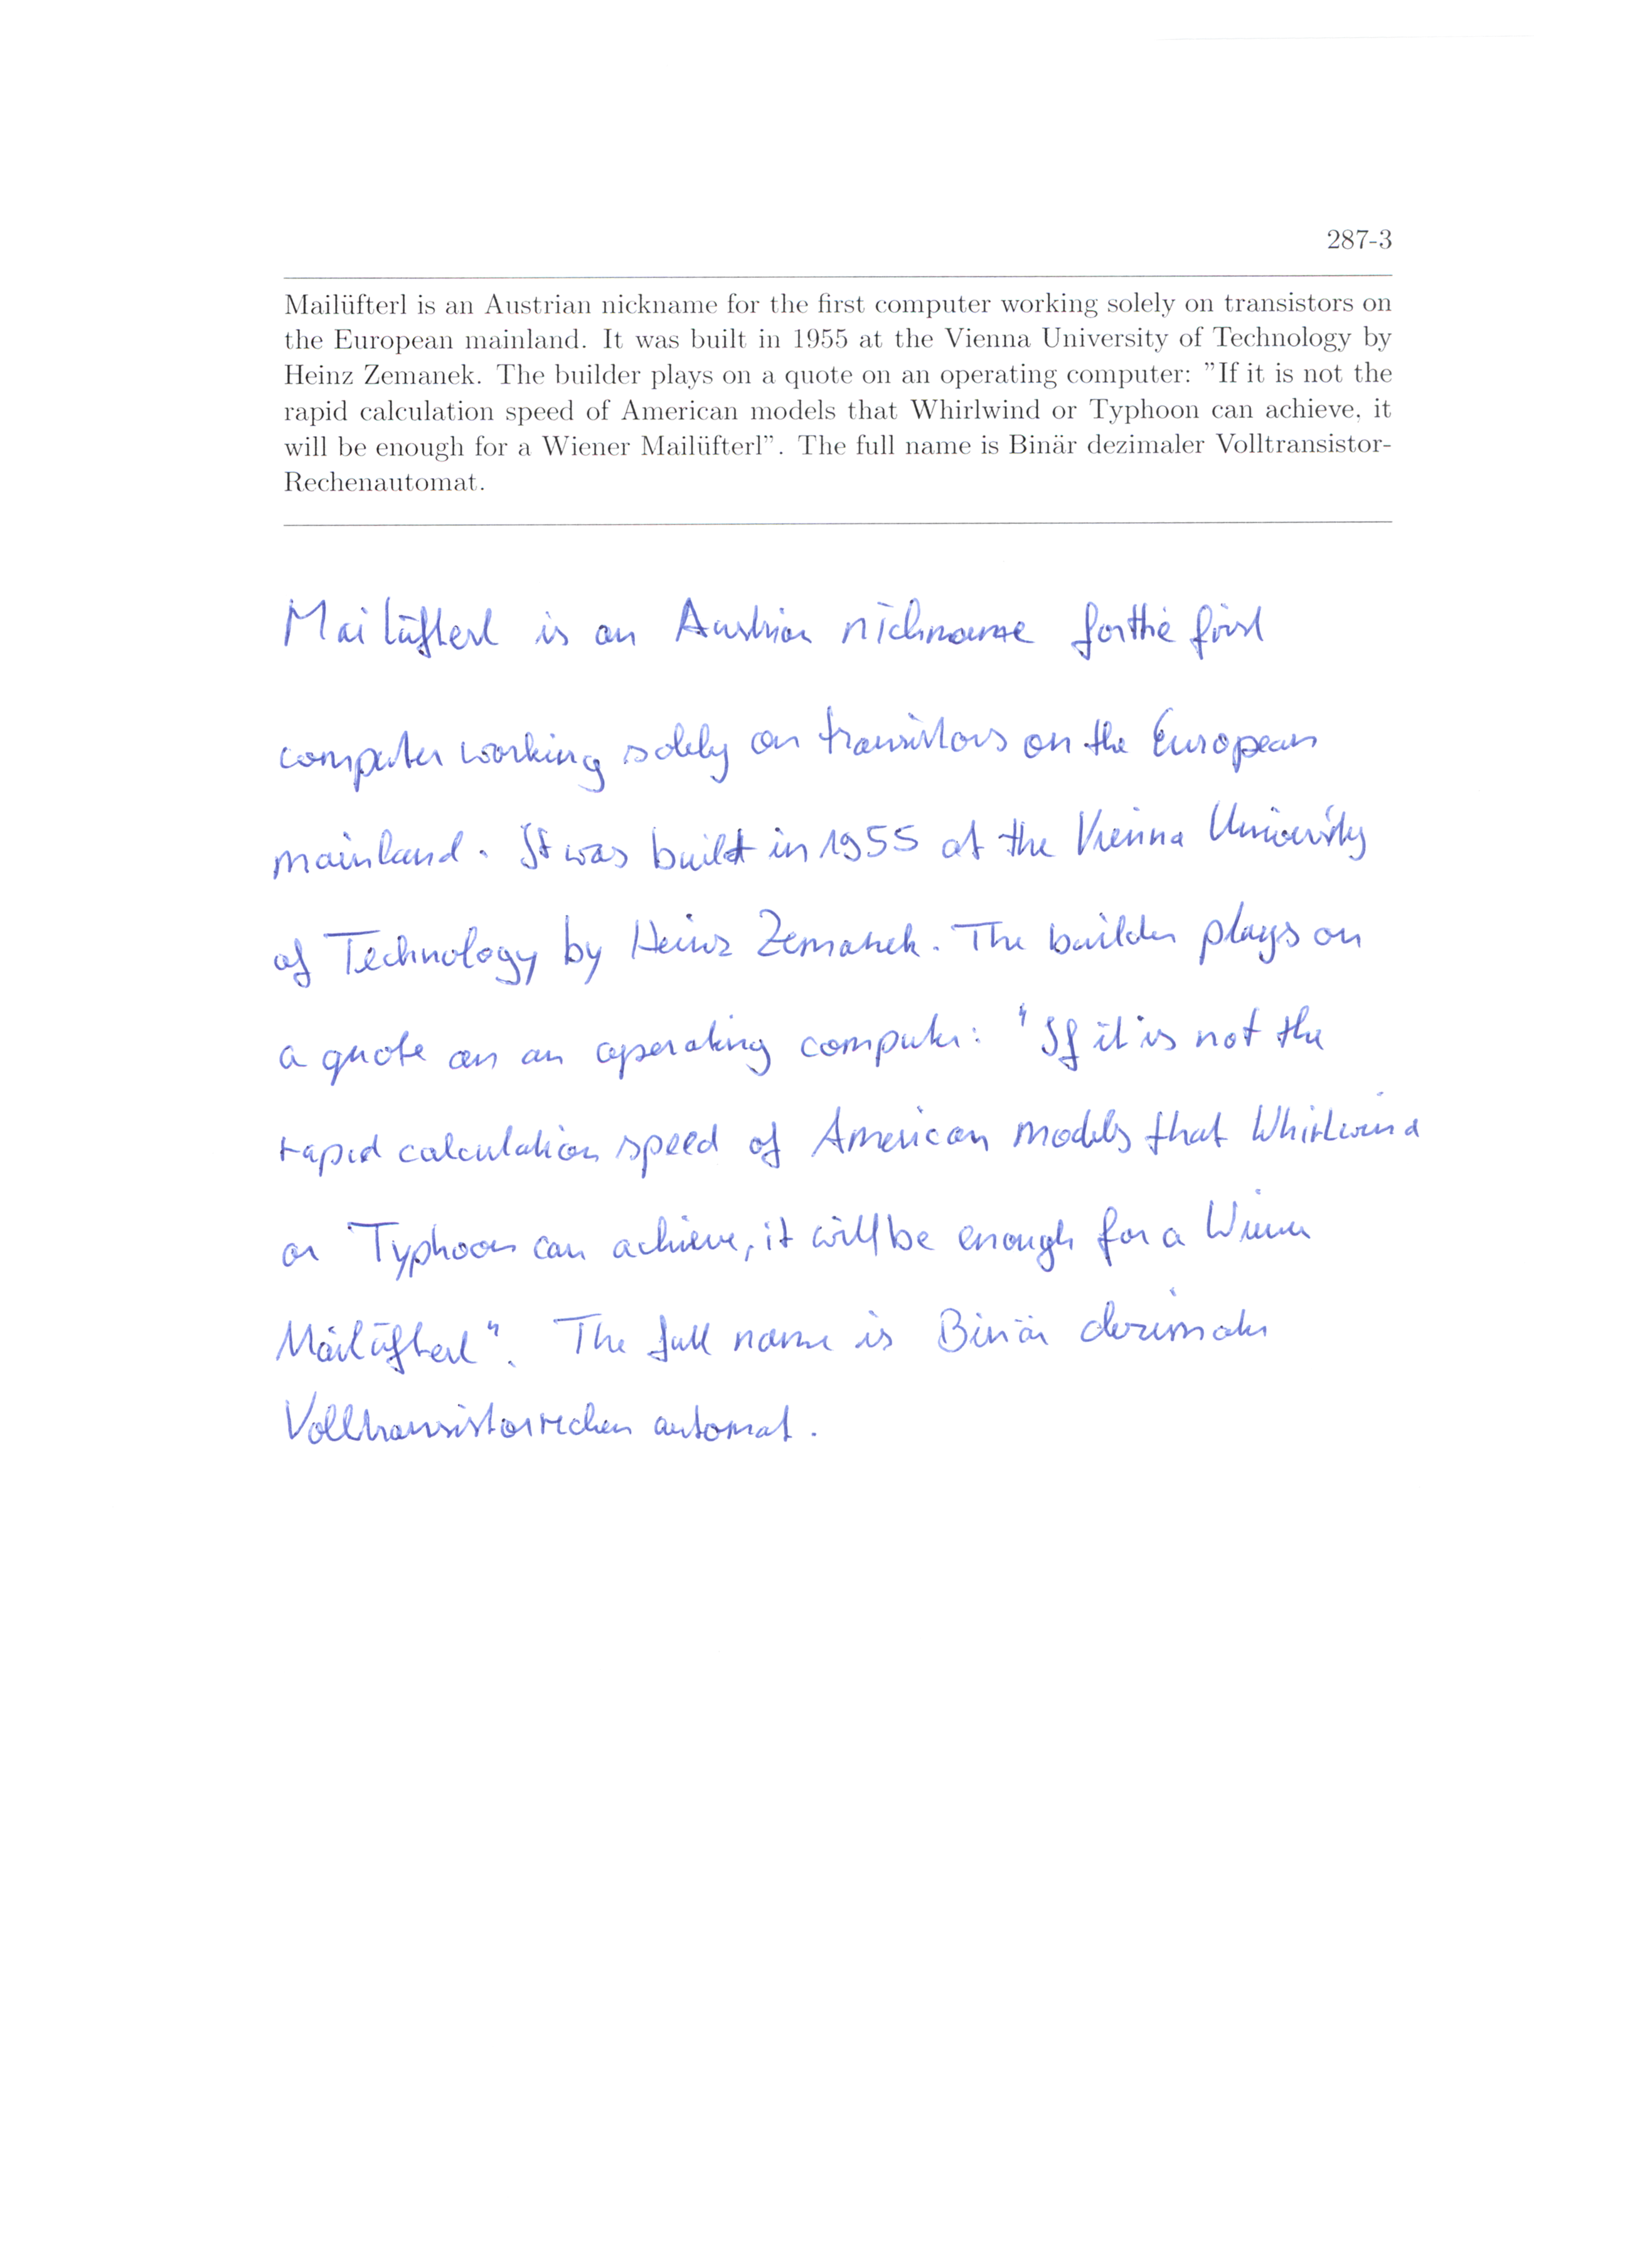 287-3
Mailüfterl is an Austrian nickname for the first computer working solely on transistors on
the European mainland. It was built in 1955 at the Vienna University of Technology by
Heinz Zemanek. The builder plays on a quote on an operating computer: "If it is not the
rapid calculation speed of American models that Whirlwind or Typhoon can achieve, it
will be enough for a Wiener Mailüfterl". The full name is Binär dezimaler Volltransistor-
Rechenautomat.
Mailüfterl is an Austrian nickname for the first
computer working solely on transistors on the European
mainland. It was built in 1955 at the Vienna University
of Technology by Heinz Zemanek. The builder plays on
a quote on an operating computer: "If it is not the
rapid calculation speed of American models that Whirlwind
or Typhoon can achieve, it will be enough for a Wiener
Mailüfterl". The full name is Binär dezimaler
Volltransistorrechen automat.